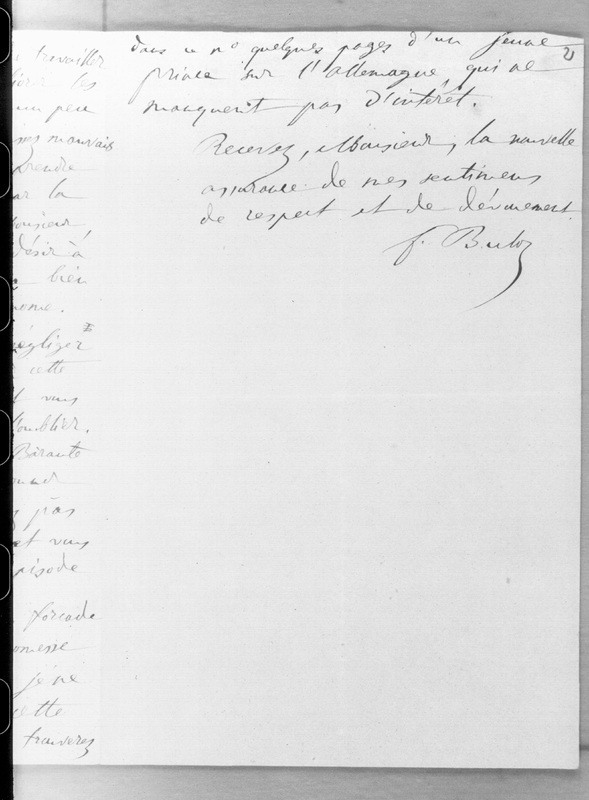 dans ce no quelques pages d'un jeune
prince sur l'allemagne, qui ne
manquent pas d'intérêt.
Recevez, Monsieur, la nouvelle
assurance de mes sentimens
de respect et de dévouement.
f. Buloz
travailler
les
un peu
mauvais
prendre
la
désir à
bien
négliger
cette
vous
l'oublier.
Barante
pas
et vous
episode
forcade
je ne
cette
trouverez